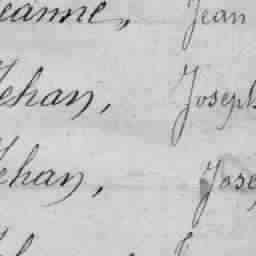 Jeanne, Jean
Jehan, Joseph
Jehan, Jose